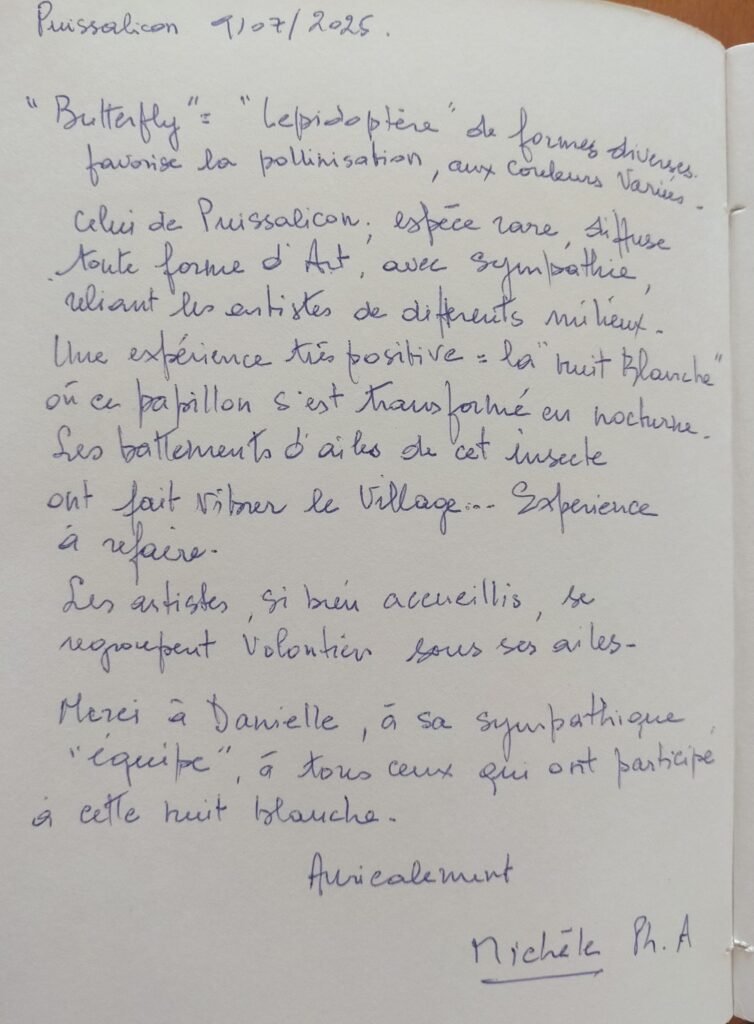 Puissalicon 9/07/2025.
"Butterfly" = "Lepidoptère" de formes diverses.
favorise la pollinisation, aux couleurs variées.
Celui de Puissalicon, espèce rare, diffuse
toute forme d'Art, avec sympathie,
reliant les artistes de différents milieux.
Une expérience très positive = la "nuit blanche"
où ce papillon s'est transformé en nocturne.
Les battements d'ailes de cet insecte
ont fait vibrer le village... Expérience
à refaire.
Les artistes, si bien accueillis, se
regroupent volontiers sous ses ailes-
Merci à Danielle, à sa sympathique
"équipe", à tous ceux qui ont participé
à cette nuit blanche.
Amicalement
Michèle Ph. A